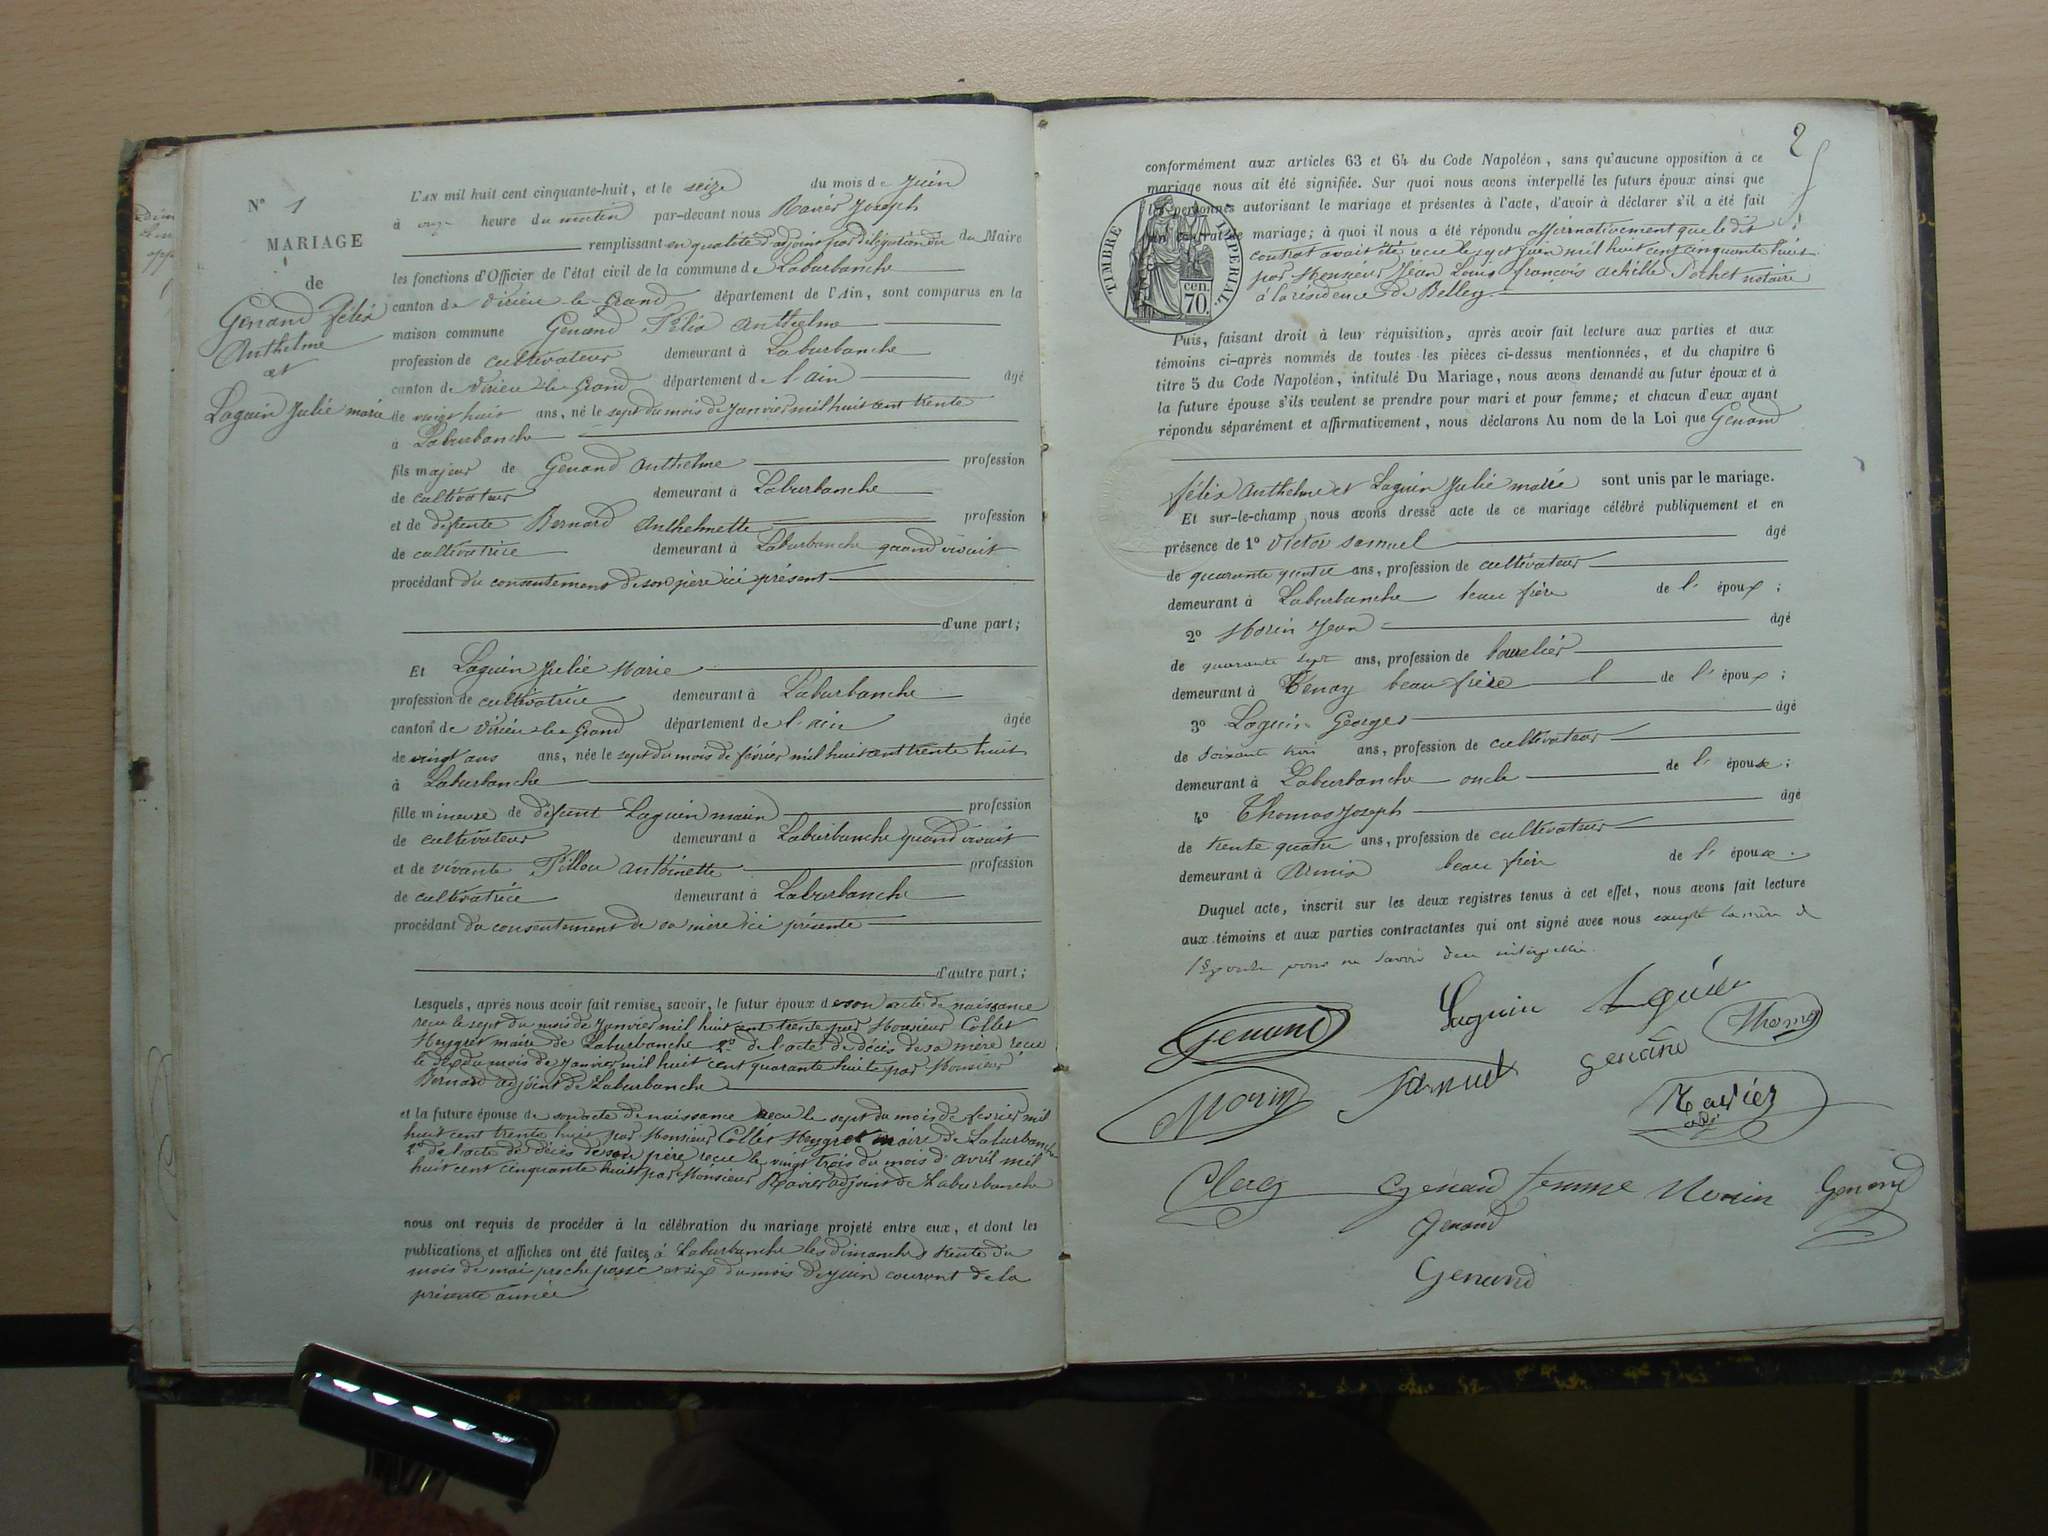 N° 1
MARIAGE
de
Genand Félix
Anthelme
et
Laguin Julie marie
L'AN mil huit cent cinquante-huit, et le seize du mois de Juin
à onze heure du matin par-devant nous Ravier Joseph
remplissant en qualité d'adjoint par délégation du du Maire
les fonctions d'Officier de l'état civil de la commune de Laburbanche
canton de Virieu le Grand département de l'Ain, sont comparus en la
maison commune Genand Félix Anthelme
profession de cultivateur demeurant à Laburbanche
canton de Virieu le Grand département de l'ain âgé
de vingt huit ans, né le sept du mois de Janvier mil huit cent trente
à Laburbanche
fils majeur de Genand Anthelme profession
de cultivateur demeurant à Laburbanche
et de défunte Bernard Anthelmette profession
de cultivatrice demeurant à Laburbanche quand vivait
procédant du consentement de son père ici présent
d'une part;
Et Laguin Julie Marie
profession de cultivatrice demeurant à Laburbanche
canton de Virieu le Grand département de l'ain âgée
de vingt ans ans, née le sept du mois de février mil huit cent trente huit
à Laburbanche
fille mineure de défunt Laguin marin profession
de cultivateur demeurant à Laburbanche quand vivait
et de vivante Fillou Antoinette profession
de cultivatrice demeurant à Laburbanche
procédant du consentement de sa mère ici présente
d'autre part;
Lesquels, après nous avoir fait remise, savoir, le futur époux de son acte de naissance
recu le sept du mois de Janvier mil huit cent trente par Monsieur Collet
Meygret maire de Laburbanche 2° de l'acte de décès de sa mère recu
le du mois de Janvier mil huit cent quarante huite par Monsieur
Bernard adjoint de Laburbanche
et la future épouse de son acte de naissance recu le sept du mois de fevrier mil
huit cent trente huit par Monsieur Collet Meygret maire de Laburbanche
2° de l'acte de décès de son père recu le vingt trois du mois d'avril mil
huit cent cinquante huit par Monsieur Ravier adjoint de Laburbanche
nous ont requis de procéder à la célébration du mariage projeté entre eux, et dont les
publications et affiches ont été faites à Laburbanche les dimanches trente du
mois de mai proche passé et six du mois de juin courant de la
présente année
2
conformément aux articles 63 et 64 du Code Napoléon, sans qu'aucune opposition à ce
mariage nous ait été signifiée. Sur quoi nous avons interpellé les futurs époux ainsi que
les personnes autorisant le mariage et présentes à l'acte, d'avoir à déclarer s'il a été fait
un contrat de mariage; à quoi il nous a été répondu affirmativement que le dit
contrat avait été recu le sept Juin mil huit cent cinquante huit
par Monsieur Jean Louis françois achille Pochet notaire
à la résidence de Belley
TIMBRE IMPÉRIAL.
70 cen.
Puis, faisant droit à leur réquisition, après avoir fait lecture aux parties et aux
témoins ci-après nommés de toutes les pièces ci-dessus mentionnées, et du chapitre 6
titre 5 du Code Napoléon, intitulé Du Mariage, nous avons demandé au futur époux et à
la future épouse s'ils veulent se prendre pour mari et pour femme; et chacun d'eux ayant
répondu séparément et affirmativement, nous déclarons Au nom de la Loi que Genand
félix Anthelme et Laguin Julie marie sont unis par le mariage.
Et sur-le-champ nous avons dressé acte de ce mariage célébré publiquement et en
présence de 1° Victor Samuel âgé
de quarante quatre ans, profession de cultivateur
demeurant à Laburbanche beau frère de l' époux;
2° Morin Jean âgé
de quarante sept ans, profession de bourelier
demeurant à Tenay beau frère de l' époux;
3° Laguin Georges âgé
de soixante trois ans, profession de cultivateur
demeurant à Laburbanche oncle de l' épouse;
4° Thomas Joseph âgé
de trente quatre ans, profession de cultivateur
demeurant à Armix beau frère de l' épouse.
Duquel acte, inscrit sur les deux registres tenus à cet effet, nous avons fait lecture
aux témoins et aux parties contractantes qui ont signé avec nous excepté la mère de
l'épouse pour ne savoir
Genand Laguin Laguin Thomas
Morin Samuel Genand Ravier
adj
Clerc Genand femme Morin Genand
Genand
Genand